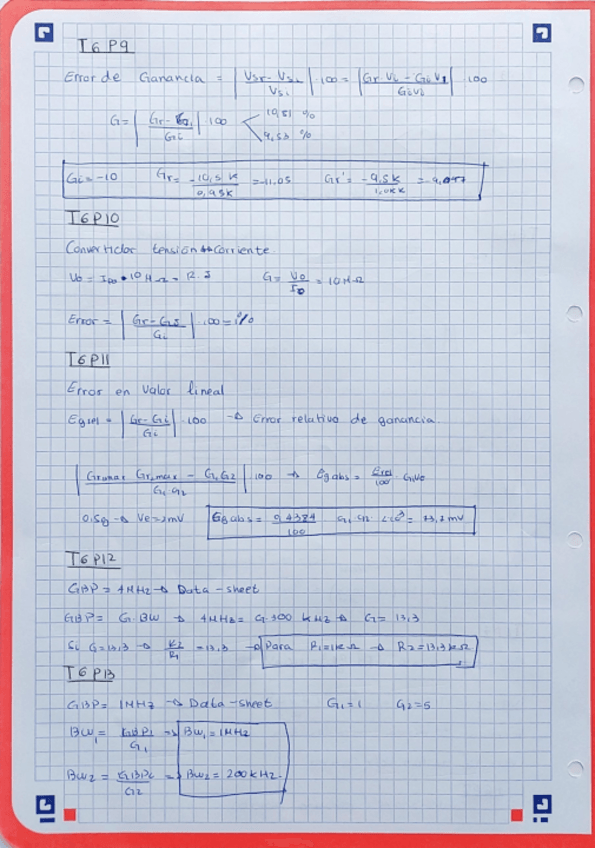 T6 P9
Error de Ganancia = | Vsr - Vsi / Vsi | · 100 = | Gr Vi - Gi Vi / Gi Vi | · 100
G = | Gr - Gi / Gi | · 100 < 10,51 %
9,53 %
Gi = -10 Gr = -10,5 K / 0,95K = -11,05 Gr' = -9,5K =
T6P10
Convertidor tensión ↔ Corriente
Vo = · 10 MΩ = R. I G = Vo = 10 MΩ
Error = | Gr - Gi / Gi | · 100 = 1%
T6 P11
Error en valor lineal
Egrel = | Gr - Gi / Gi | · 100 → Error relativo de ganancia.
| Gr1max Gr2max - G1 G2 / G1 G2 | · 100 → egabs = Erel / 100
0.5g → Ve = Egabs = / 100 mV
T6 P12
GBP = 4 MHz → Data - sheet
GBP = G · BW → 4 MHz = G · 300 kHz → G = 13,3
Si G = 13,3 → R2 / R1 = 13,3 → Para R1 = 1kΩ → R2 = 13,3 kΩ
T6 P13
GBP = 1MHz → Data - sheet G1 = 1 G2 = 5
BW1 = GBP / G1 => BW1 = 1MHz
BW2 = GBP / G2 => BW2 = 200 kHz.